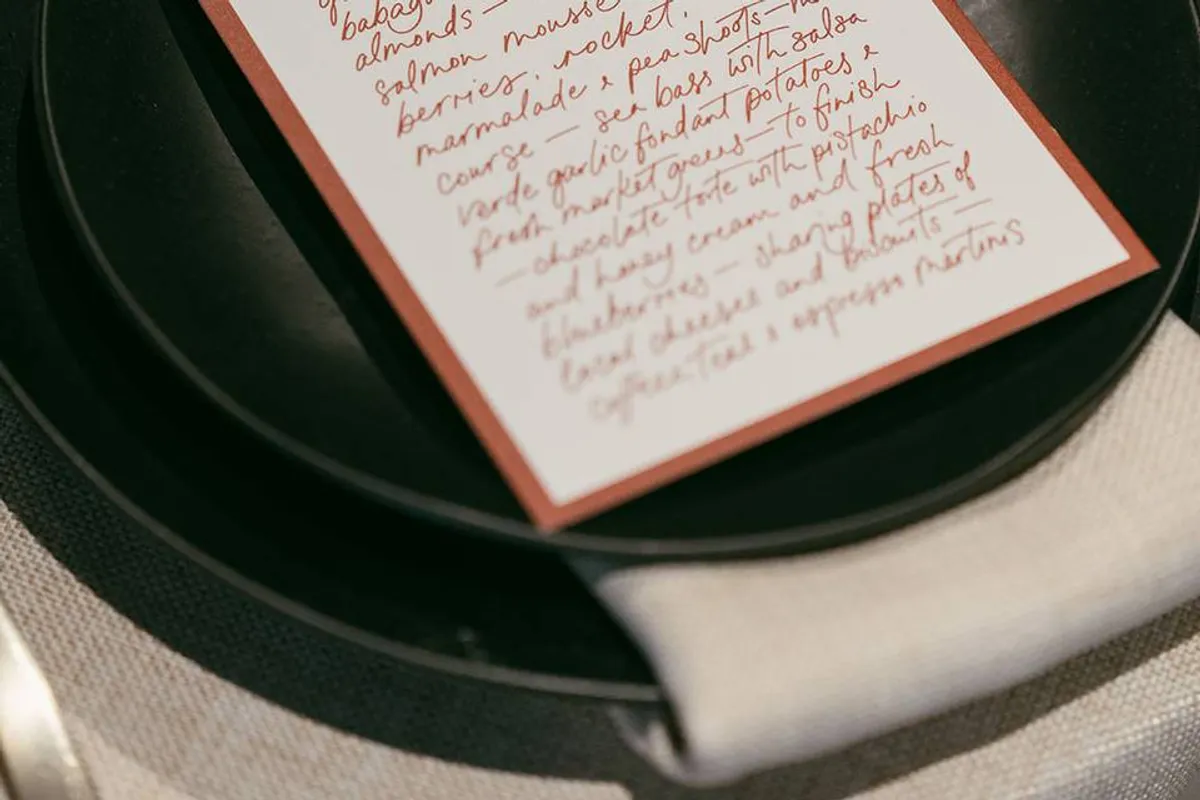 almonds —
salmon mousse
berries, rocket,
marmalade & pea shoots —
course — sea bass with salsa
verde garlic fondant potatoes &
fresh market greens — to finish
— chocolate torte with pistachio
and honey cream and fresh
blueberries — sharing plates of
local cheeses and biscuits —
coffee, teas & espresso martinis